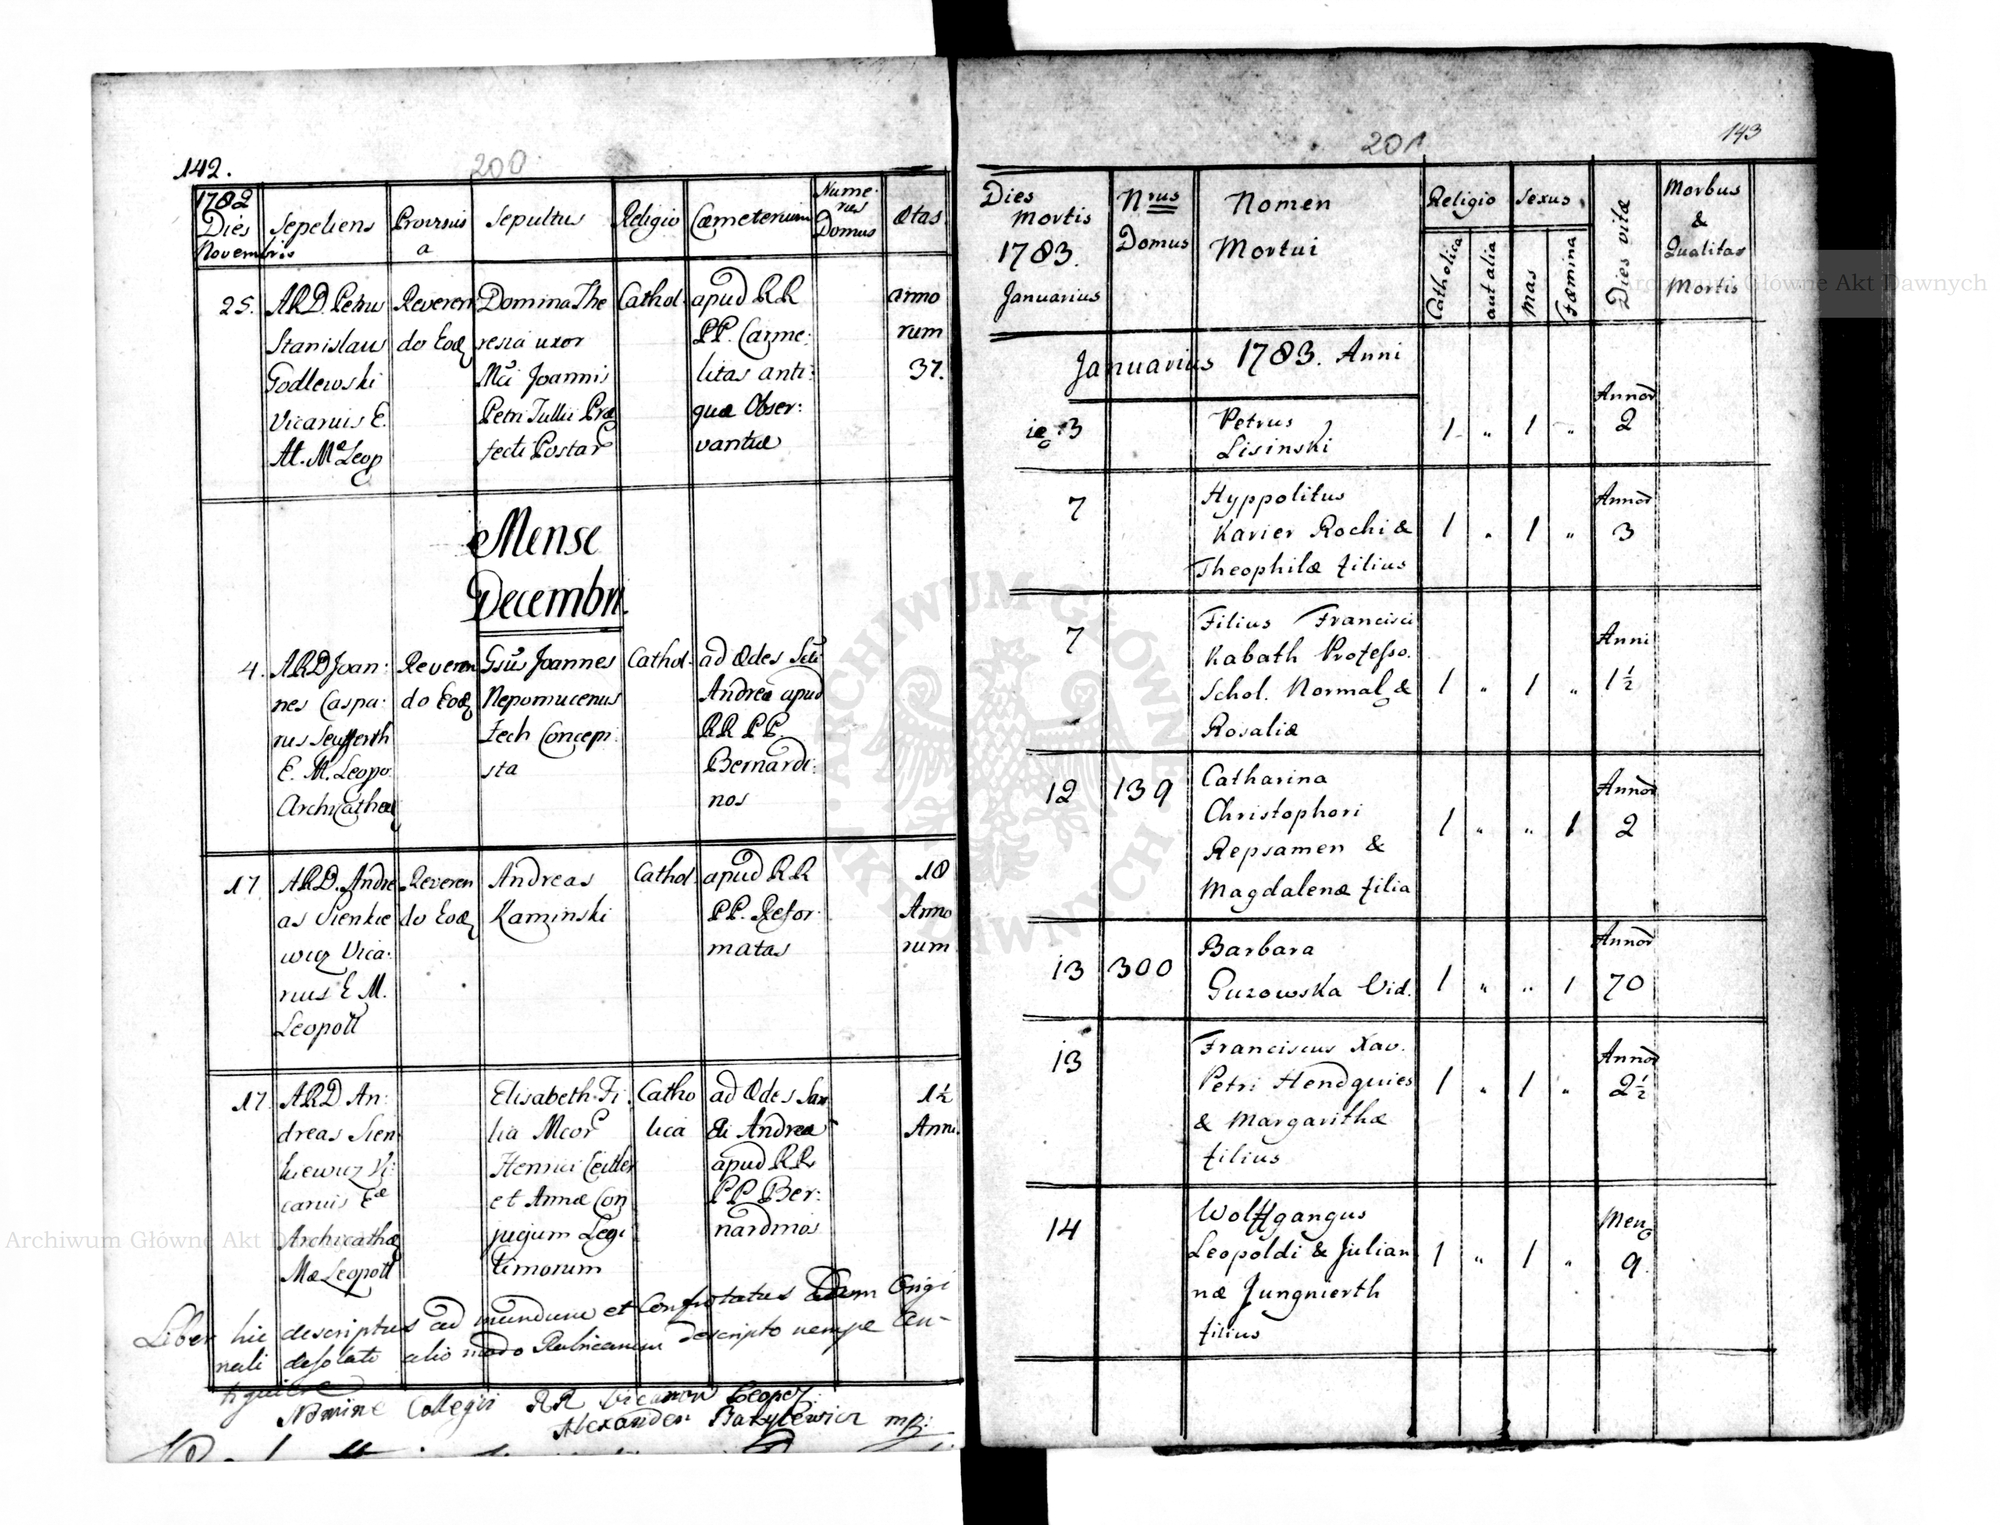 142.
200
1782
Dies
Novembris
Sepeliens
Provisus
a
Sepultus
Religio
Cæmeterium
Nume-
rus
Domus
Ætas
25.
ARD. Petrus
Stanislaus
Godlewski
Vicarius E.
At. Mæ Leop
Reveren
do Eodẽ
Domina The
resia uxor
Joannis
Petri Tullii Præ
fecti Postar
Cathol.
apud RR
PP. Carme:
litas anti:
quæ Obser:
vantiæ
anno
rum
37.
Mense
Decembri.
4.
ARD Joan:
nes Caspa:
rus Seufferth
E. M. Leopo.
ArchiCathed
Reveren
do Eodẽ
Gsũs Joannes
Nepomucenus
Fech Concepi
sta
Cathol.
ad Ædes Scti
Andreæ apud
RR PP.
Bernardi:
nos
17
ARD. Andre
as Sienkie
wicz Vica:
rius E M.
Leopoll
Reveren
do Eodẽ
Andreas
Kaminski
Cathol.
apud RR
PP. Refor
matas
18
Anno
rum
17.
ARD An:
dreas Sien
kiewicz Vi:
carius Eæ
Archicathæ
Mæ Leopoll
Elisabeth Fi
lia Mcor
Henrici Ceitler
et Annæ Con
jugium Legi
timorum
Catho
lica
ad Ædes San
cti Andreæ
apud RR
PP Ber:
nardinos
1½
Anni.
Liber hic descriptus ad mundum et Confrotatus cum Origi
nali desolato alio modo Rubricarum descripto nempe
Nomine Collegii RR Vicarior Leopoz
Alexander Batylewicz mp:
201
143
Dies
Mortis
1783.
Januarius
Nrus
Domus
Nomen
Mortui
Religio
Catholica
aut alia
Sexus
Mas
Fæmina
Dies vitæ
Morbus
&
Qualitas
Mortis
Januarius 1783. Anni
3
Petrus
Lisinski
1 „ 1 „
Annor
2
7
Hyppolitus
Xavier Rochi &
Theophilæ filius
1 „ 1 „
Annor
3
7
Filius Francisci
Kabath Professo.
Schol. Normal. &
Rosaliæ
1 „ 1 „
Anni
1½
12
139
Catharina
Christophori
Repsamen &
Magdalenæ filia
1 „ „ 1
Annor
2
13
300
Barbara
Guzowska Vid.
1 „ „ 1
Annor
70
13
Franciscus Xav.
Petri Hendquies
& Margarithæ
filius
1 „ 1 „
Annor
2½
14
Wolffgangus
Leopoldi & Julian
næ Jungwierth
filius
1 „ 1 „
Men
9.
Archiwum Główne Akt Dawnych
Archiwum Główne Akt Dawnych
ARCHIWUM GŁÓWNE AKT DAWNYCH